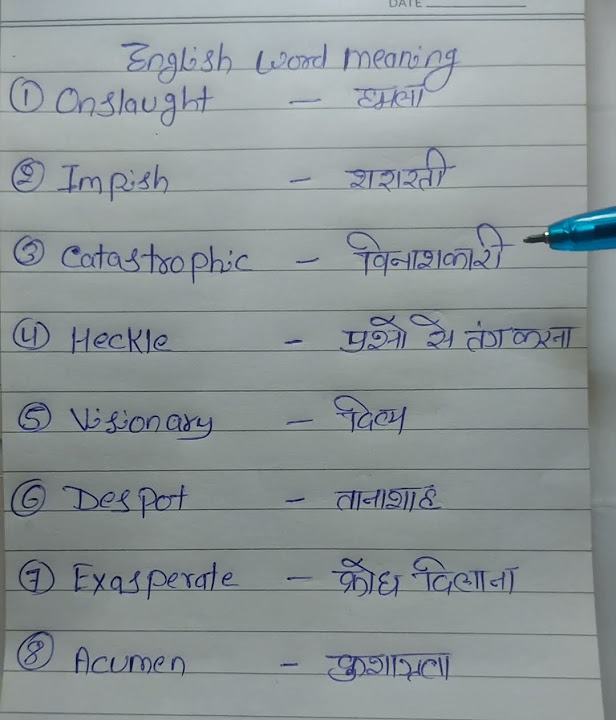 DATE
English Word Meaning
① Onslaught - हमला
② Impish - शरारती
③ Catastrophic - विनाशकारी
④ Heckle - प्रश्नों से तंग करना
⑤ Visionary - दिव्य
⑥ Despot - तानाशाह
⑦ Exasperate - क्रोध दिलाना
⑧ Acumen - कुशाग्रता